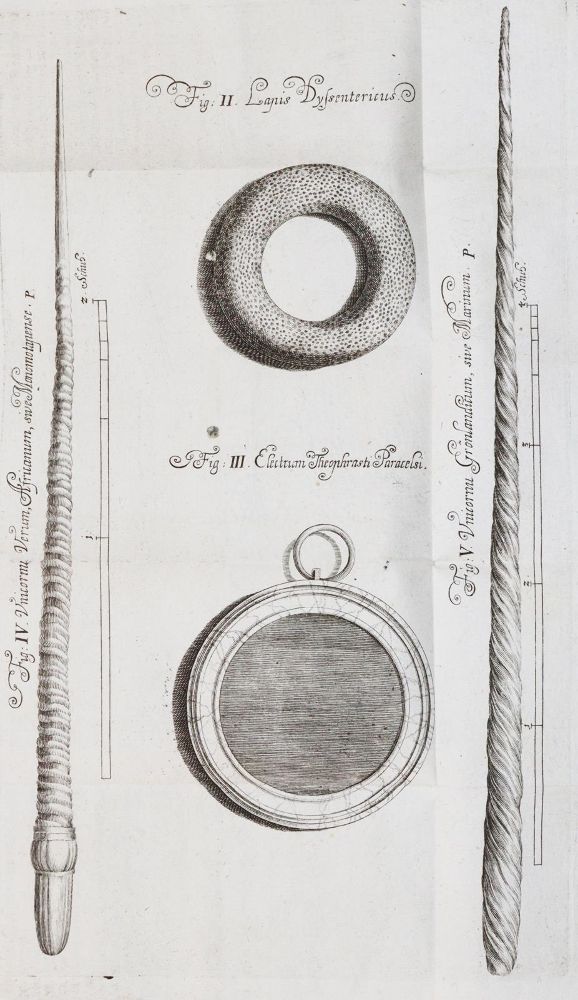 Fig: II. Lapis Dyſsentericus.
Fig: III. Electrum Theophrasti Paracelsi.
Fig: IV. Vnicornu Verum, Africanum, sive Monomotapense. P.
2 Schuh.
1
Fig: V. Vnicornu Grönlandicum, sive Marinum. P.
4 Schuh.
3
2
1